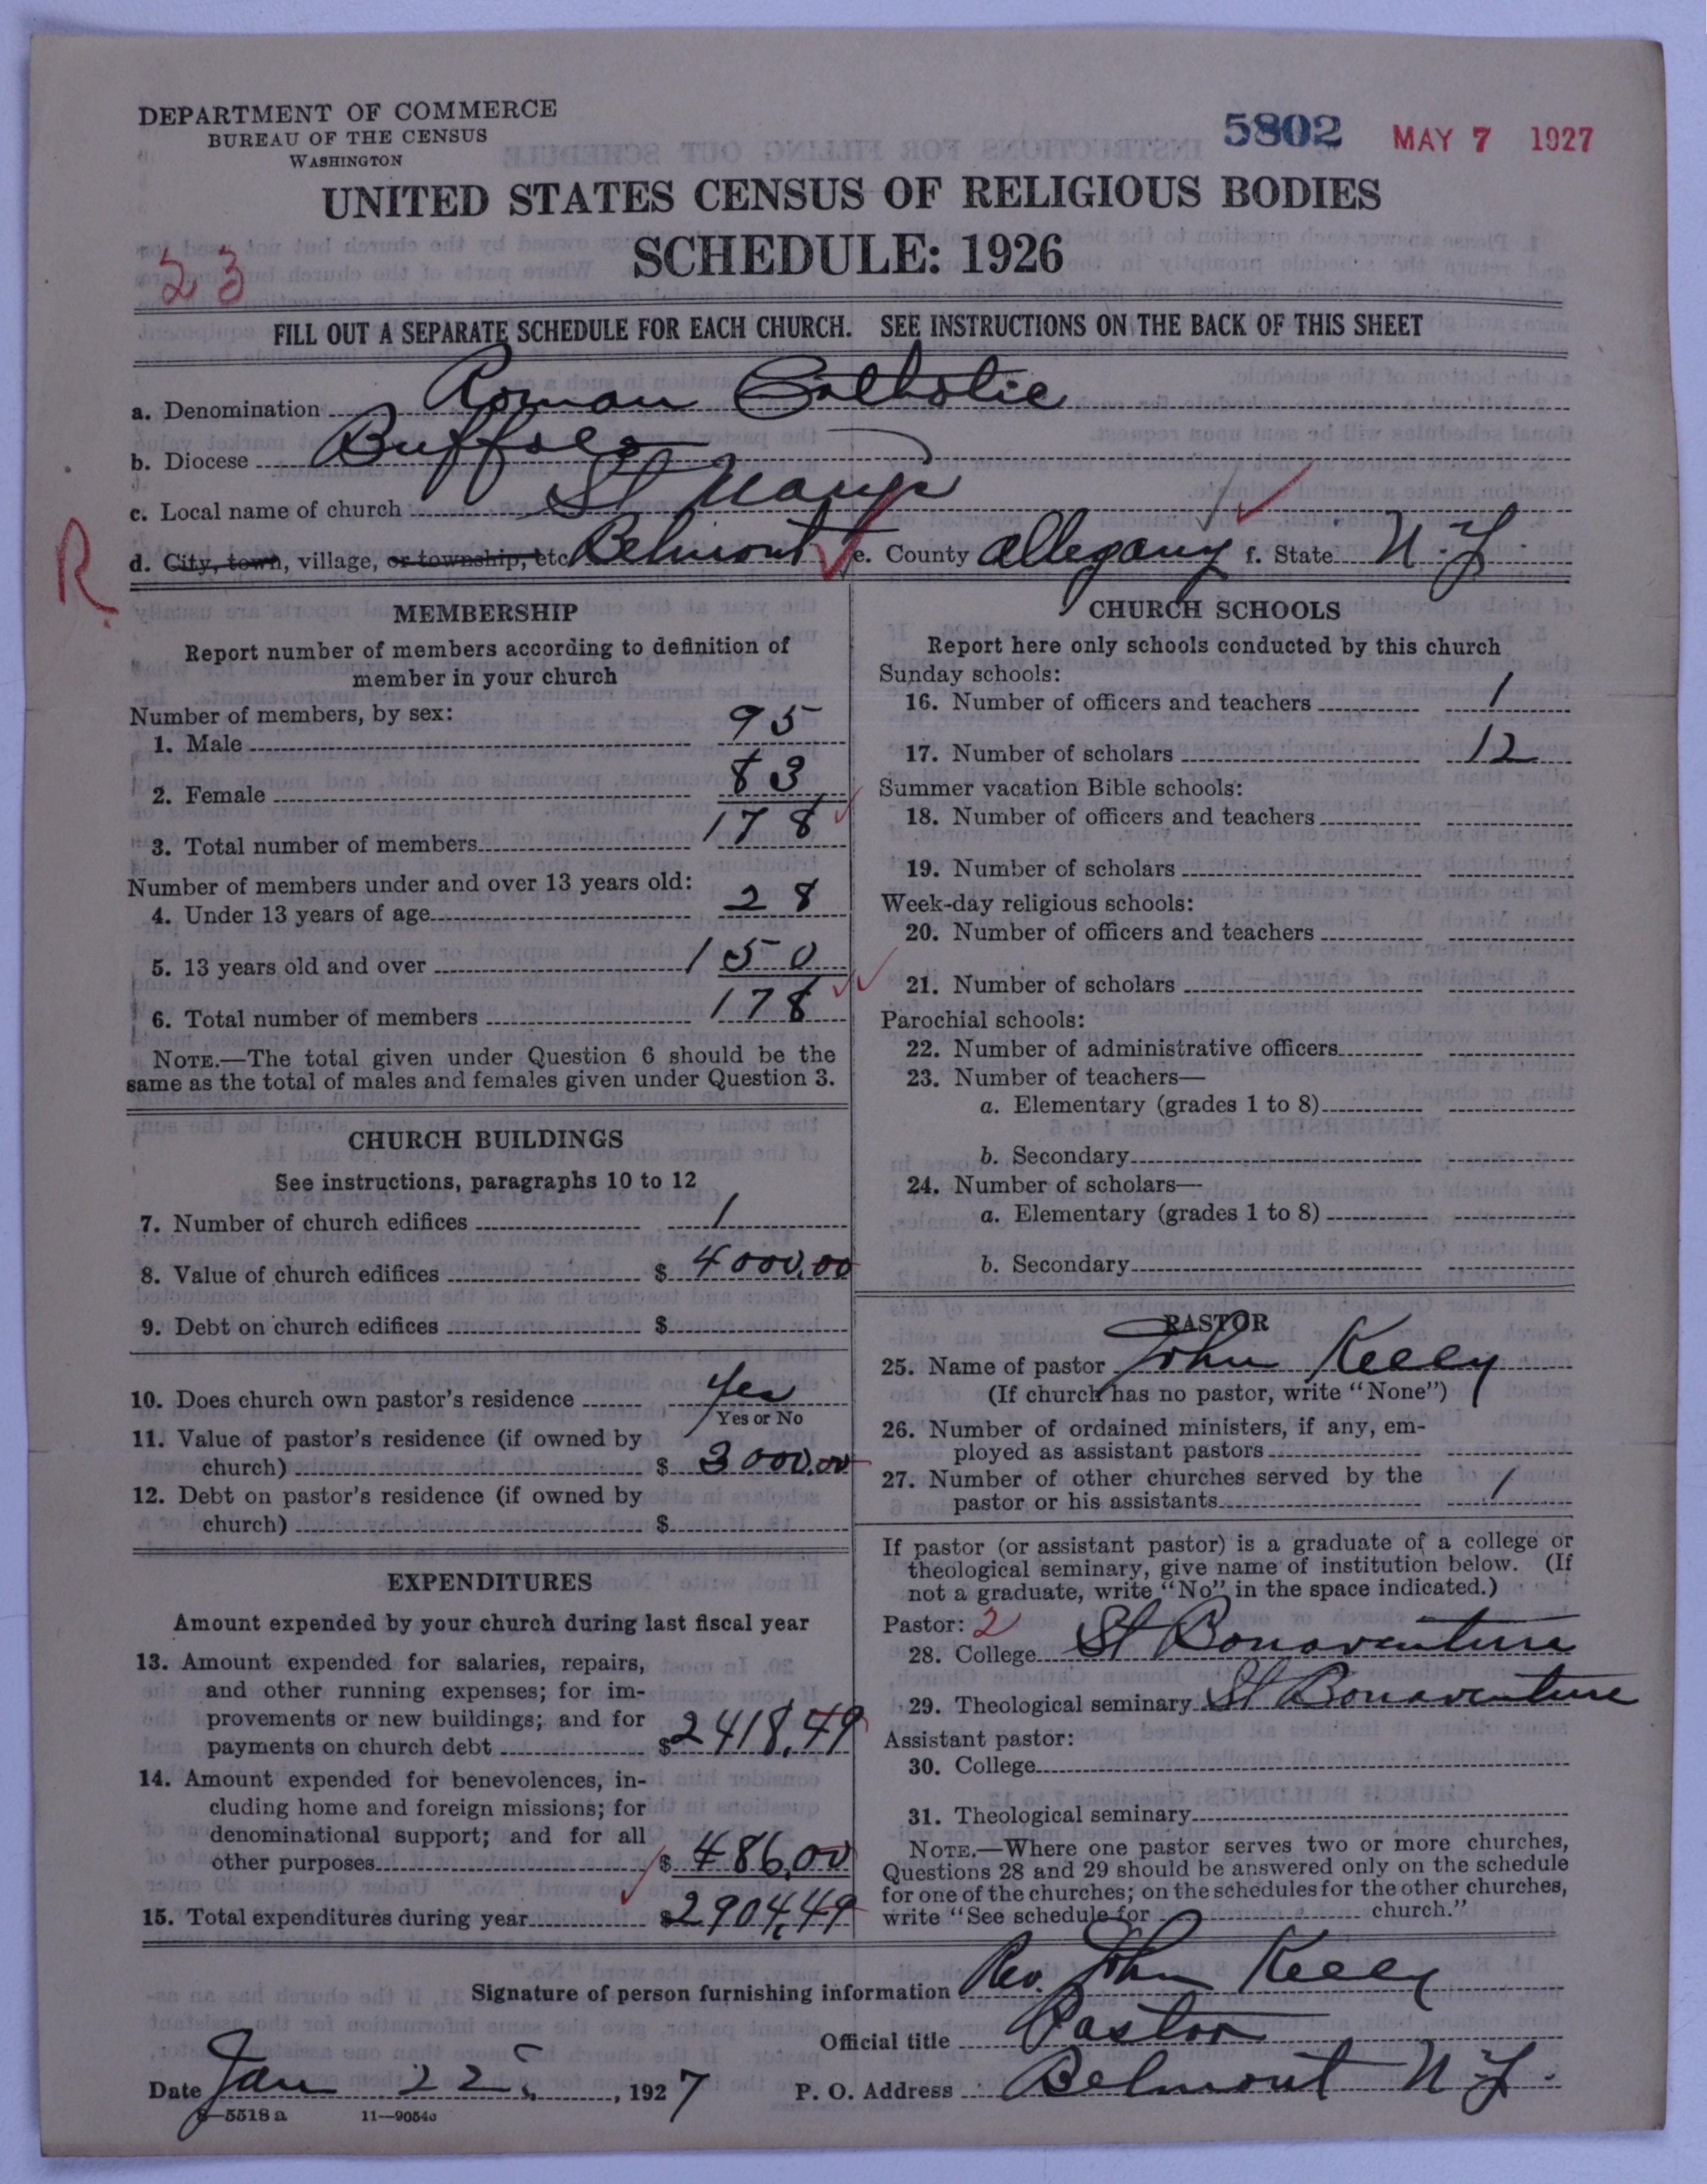 DEPARTMENT OF COMMERCE
BUREAU OF THE CENSUS
WASHINGTON
5802 MAY 7 1927
UNITED STATES CENSUS OF RELIGIOUS BODIES
SCHEDULE: 1926
23
FILL OUT A SEPARATE SCHEDULE FOR EACH CHURCH. SEE INSTRUCTIONS ON THE BACK OF THIS SHEET
a. Denomination Roman Catholic
b. Diocese Buffalo
c. Local name of church St Mary's
d. City, town, village, or township, etc. Belmont e. County Allegany f. State N.Y.
R
MEMBERSHIP
Report number of members according to definition of
member in your church
Number of members, by sex:
1. Male 95
2. Female 83
3. Total number of members 178
Number of members under and over 13 years old:
4. Under 13 years of age 28
5. 13 years old and over 150
6. Total number of members 178
NOTE.—The total given under Question 6 should be the
same as the total of males and females given under Question 3.
CHURCH BUILDINGS
See instructions, paragraphs 10 to 12
7. Number of church edifices 1
8. Value of church edifices $ 4000.00
9. Debt on church edifices $
10. Does church own pastor's residence Yes
Yes or No
11. Value of pastor's residence (if owned by
church) $ 3000.00
12. Debt on pastor's residence (if owned by
church) $
EXPENDITURES
Amount expended by your church during last fiscal year
13. Amount expended for salaries, repairs,
and other running expenses; for im-
provements or new buildings; and for
payments on church debt $ 2418.49
14. Amount expended for benevolences, in-
cluding home and foreign missions; for
denominational support; and for all
other purposes $ 486.00
15. Total expenditures during year $ 2904.49
CHURCH SCHOOLS
Report here only schools conducted by this church
Sunday schools:
16. Number of officers and teachers 1
17. Number of scholars 12
Summer vacation Bible schools:
18. Number of officers and teachers
19. Number of scholars
Week-day religious schools:
20. Number of officers and teachers
21. Number of scholars
Parochial schools:
22. Number of administrative officers
23. Number of teachers—
a. Elementary (grades 1 to 8)
b. Secondary
24. Number of scholars—
a. Elementary (grades 1 to 8)
b. Secondary
PASTOR
25. Name of pastor John Kelly
(If church has no pastor, write "None")
26. Number of ordained ministers, if any, em-
ployed as assistant pastors
27. Number of other churches served by the
pastor or his assistants 1
If pastor (or assistant pastor) is a graduate of a college or
theological seminary, give name of institution below. (If
not a graduate, write "No" in the space indicated.)
Pastor: 2
28. College St Bonaventure
29. Theological seminary St Bonaventure
Assistant pastor:
30. College
31. Theological seminary
NOTE.—Where one pastor serves two or more churches,
Questions 28 and 29 should be answered only on the schedule
for one of the churches; on the schedules for the other churches,
write "See schedule for church."
Signature of person furnishing information Rev. John Kelly
Official title Pastor
Date Jan 22, 1927 P. O. Address Belmont N.Y.
8—5518a 11—9054c